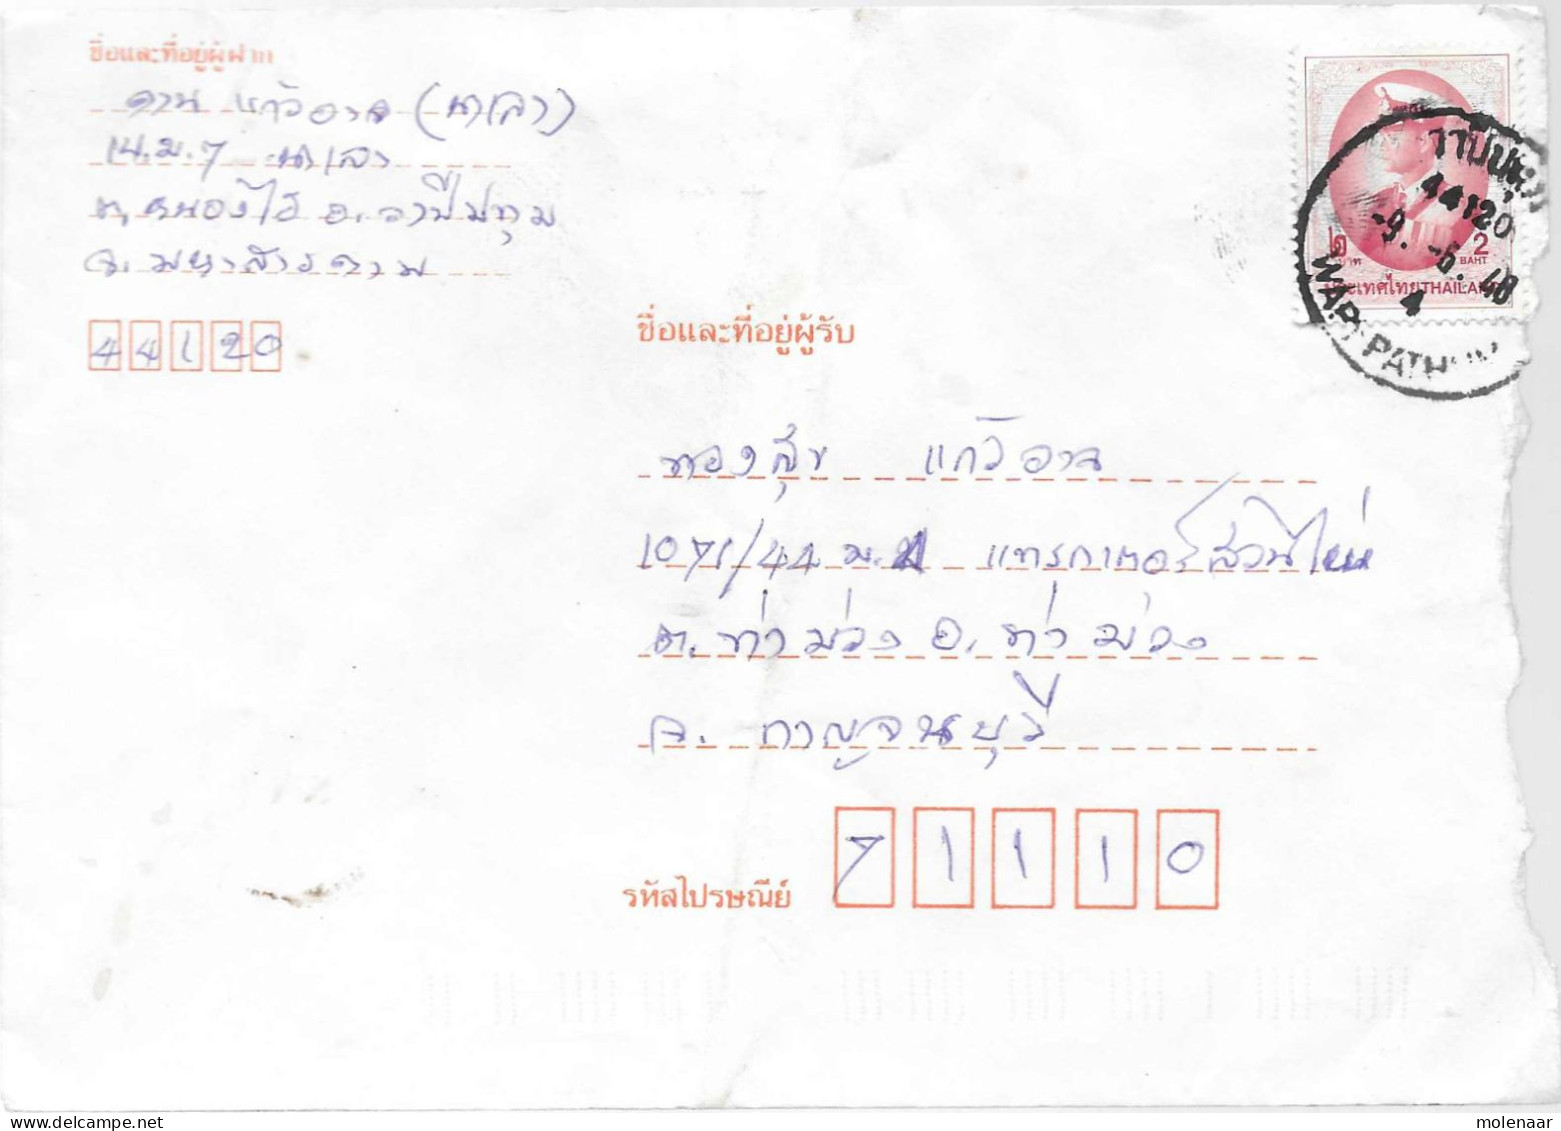 ชื่อและที่อยู่ผู้ฝาก
แก้วอาจ (นาเลา)
14 ม.7 นาเลา
ต.หนองไฮ อ.วาปีปทุม
จ.มหาสารคาม
44120
วาปีปทุม
44120
-9. -6. 48
4
WAPI PATHUM
๒ บาท
2 BAHT
ประเทศไทย THAILAND
ชื่อและที่อยู่ผู้รับ
ทองสุข แก้วอาจ
1071/44 ม.1 แทรกเตอร์สวนใหม่
ต.ท่าม่วง อ.ท่าม่วง
จ. กาญจนบุรี
รหัสไปรษณีย์ 71110
molenaar